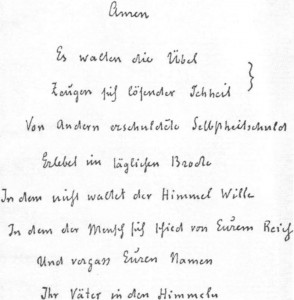 Amen
Es walten die Übel
Zeugen sich lösender Ichheit
Von Andern erschuldete Selbstheitschuld
Erlebet im täglichen Brode
In dem nicht waltet der Himmel Wille
In dem der Mensch sich schied von Eurem Reich
Und vergass Euren Namen
Ihr Väter in den Himmeln